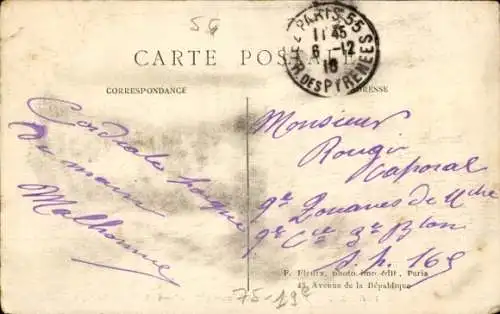 5G
CARTE POSTALE
PARIS 55
11 45
6 -12
16
R. DES PYRENEES
CORRESPONDANCE
ADRESSE
Cordiale poignée
de main
Malhomme
Monsieur
Rougir
Caporal
9e Zouaves de Mche
9e Cie 3e Blon
S. P. 163
F. Fleury, phot-imp-édit, Paris
45, Avenue de la République
75-19e